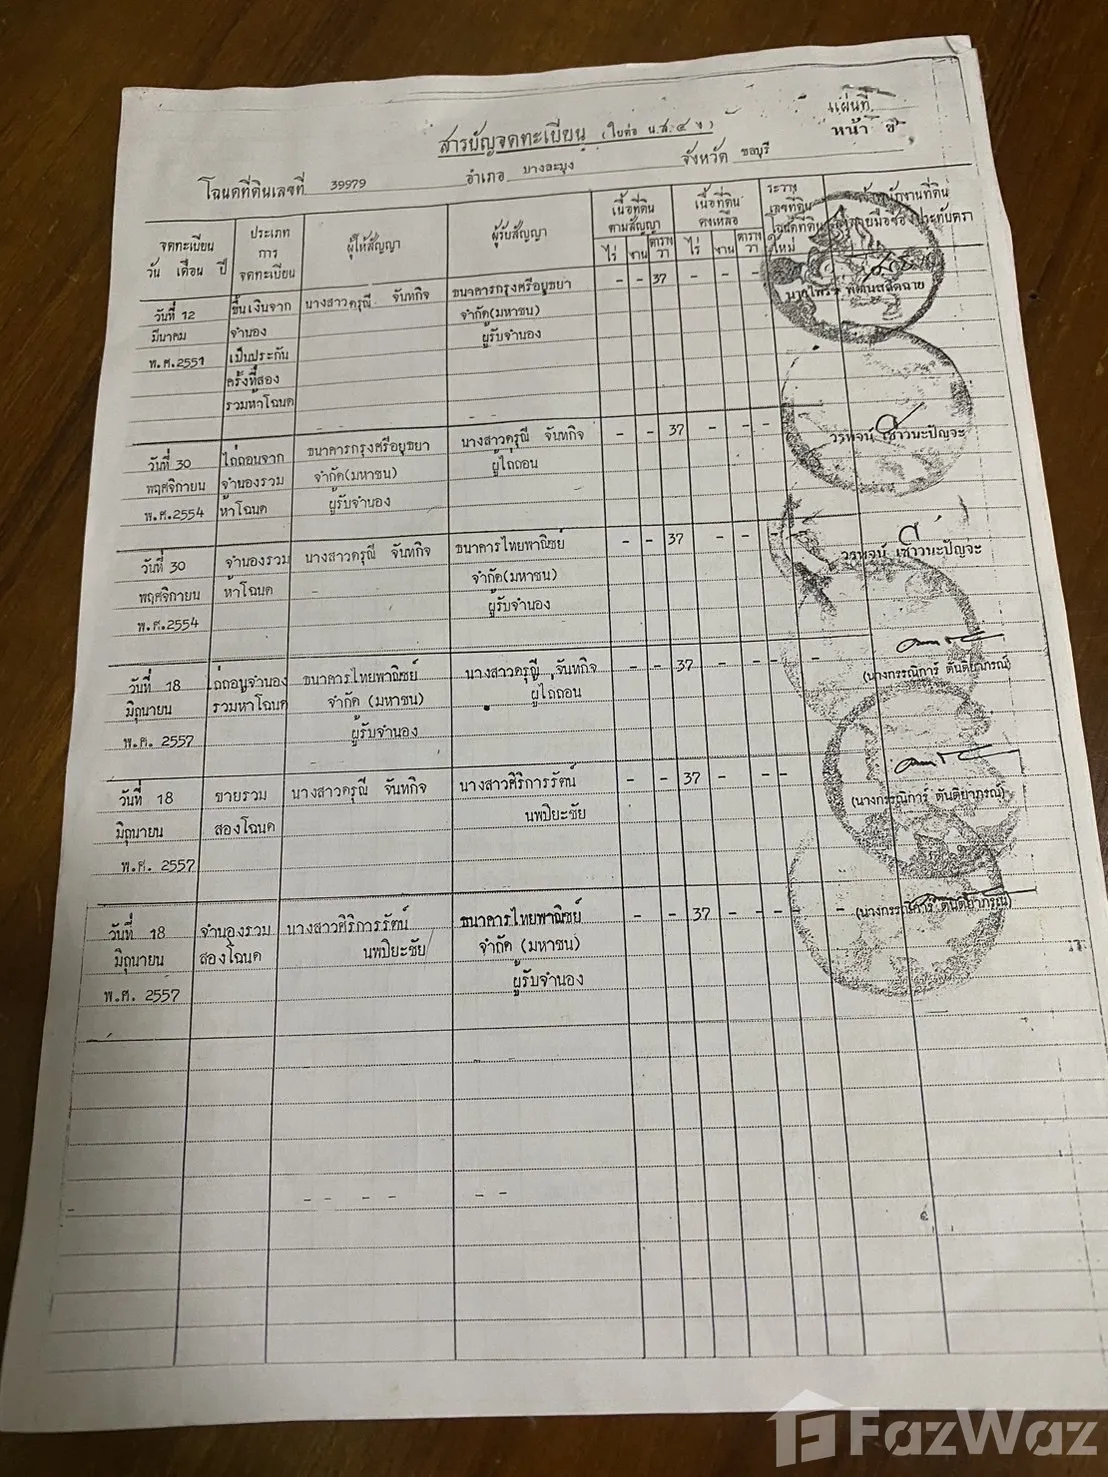 แผ่นที่
หน้า ข
สารบัญจดทะเบียน (ใบต่อ น.ส.๔ ง)
โฉนดที่ดินเลขที่ 39979 อำเภอ บางละมุง จังหวัด ชลบุรี
จดทะเบียน วัน เดือน ปี
ประเภทการจดทะเบียน
ผู้ให้สัญญา
ผู้รับสัญญา
เนื้อที่ดินตามสัญญา
ไร่ งาน ตารางวา
เนื้อที่ดินคงเหลือ
ไร่ งาน ตารางวา
ระวาง เลขที่ดิน โฉนดที่ดินใหม่
วันที่ 12 ขึ้นเงินจาก นางสาวดรุณี จันทกิจ ธนาคารกรุงศรีอยุธยา - - 37 - - - -
มีนาคม จำนอง จำกัด(มหาชน)
พ.ศ.2551 เป็นประกัน ผู้รับจำนอง
ครั้งที่สอง
รวมห้าโฉนด
วันที่ 30 ไถ่ถอนจาก ธนาคารกรุงศรีอยุธยา นางสาวดรุณี จันทกิจ - - 37 - - - - วรพจน์ เชาวนะปัญจะ
พฤศจิกายน จำนองรวม จำกัด(มหาชน) ผู้ไถ่ถอน
พ.ศ.2554 ห้าโฉนด ผู้รับจำนอง
วันที่ 30 จำนองรวม นางสาวดรุณี จันทกิจ ธนาคารไทยพาณิชย์ - - 37 - - - - วรพจน์ เชาวนะปัญจะ
พฤศจิกายน ห้าโฉนด จำกัด(มหาชน)
พ.ศ.2554 ผู้รับจำนอง
วันที่ 18 ไถ่ถอนจำนอง ธนาคารไทยพาณิชย์ นางสาวดรุณี จันทกิจ - - 37 - - - - - (นางกรรณิการ์ ตันติยาภรณ์)
มิถุนายน รวมห้าโฉนด จำกัด (มหาชน) ผู้ไถ่ถอน
พ.ศ. 2557 ผู้รับจำนอง
วันที่ 18 ขายรวม นางสาวดรุณี จันทกิจ นางสาวศิริการรัตน์ - - 37 - - - (นางกรรณิการ์ ตันติยาภรณ์)
มิถุนายน สองโฉนด นพปิยะชัย
พ.ศ. 2557
วันที่ 18 จำนองรวม นางสาวศิริการรัตน์ ธนาคารไทยพาณิชย์ - - 37 - - - - - (นางกรรณิการ์ ตันติยาภรณ์)
มิถุนายน สองโฉนด นพปิยะชัย จำกัด (มหาชน)
พ.ศ. 2557 ผู้รับจำนอง
FazWaz